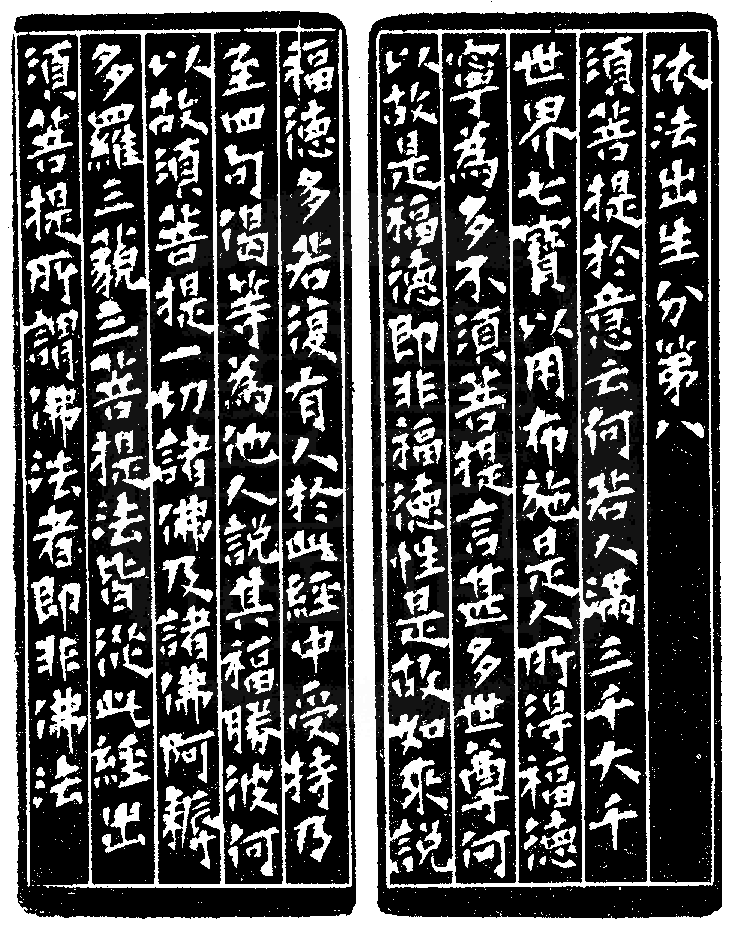 依法出生分第八
須菩提於意云何若人滿三千大千
世界七寶以用布施是人所得福德
寧為多不須菩提言甚多世尊何
以故是福德即非福德性是故如來說
福德多若復有人於此經中受持乃
至四句偈等為他人說其福勝彼何
以故須菩提一切諸佛及諸佛阿耨
多羅三藐三菩提法皆從此經出
須菩提所謂佛法者即非佛法